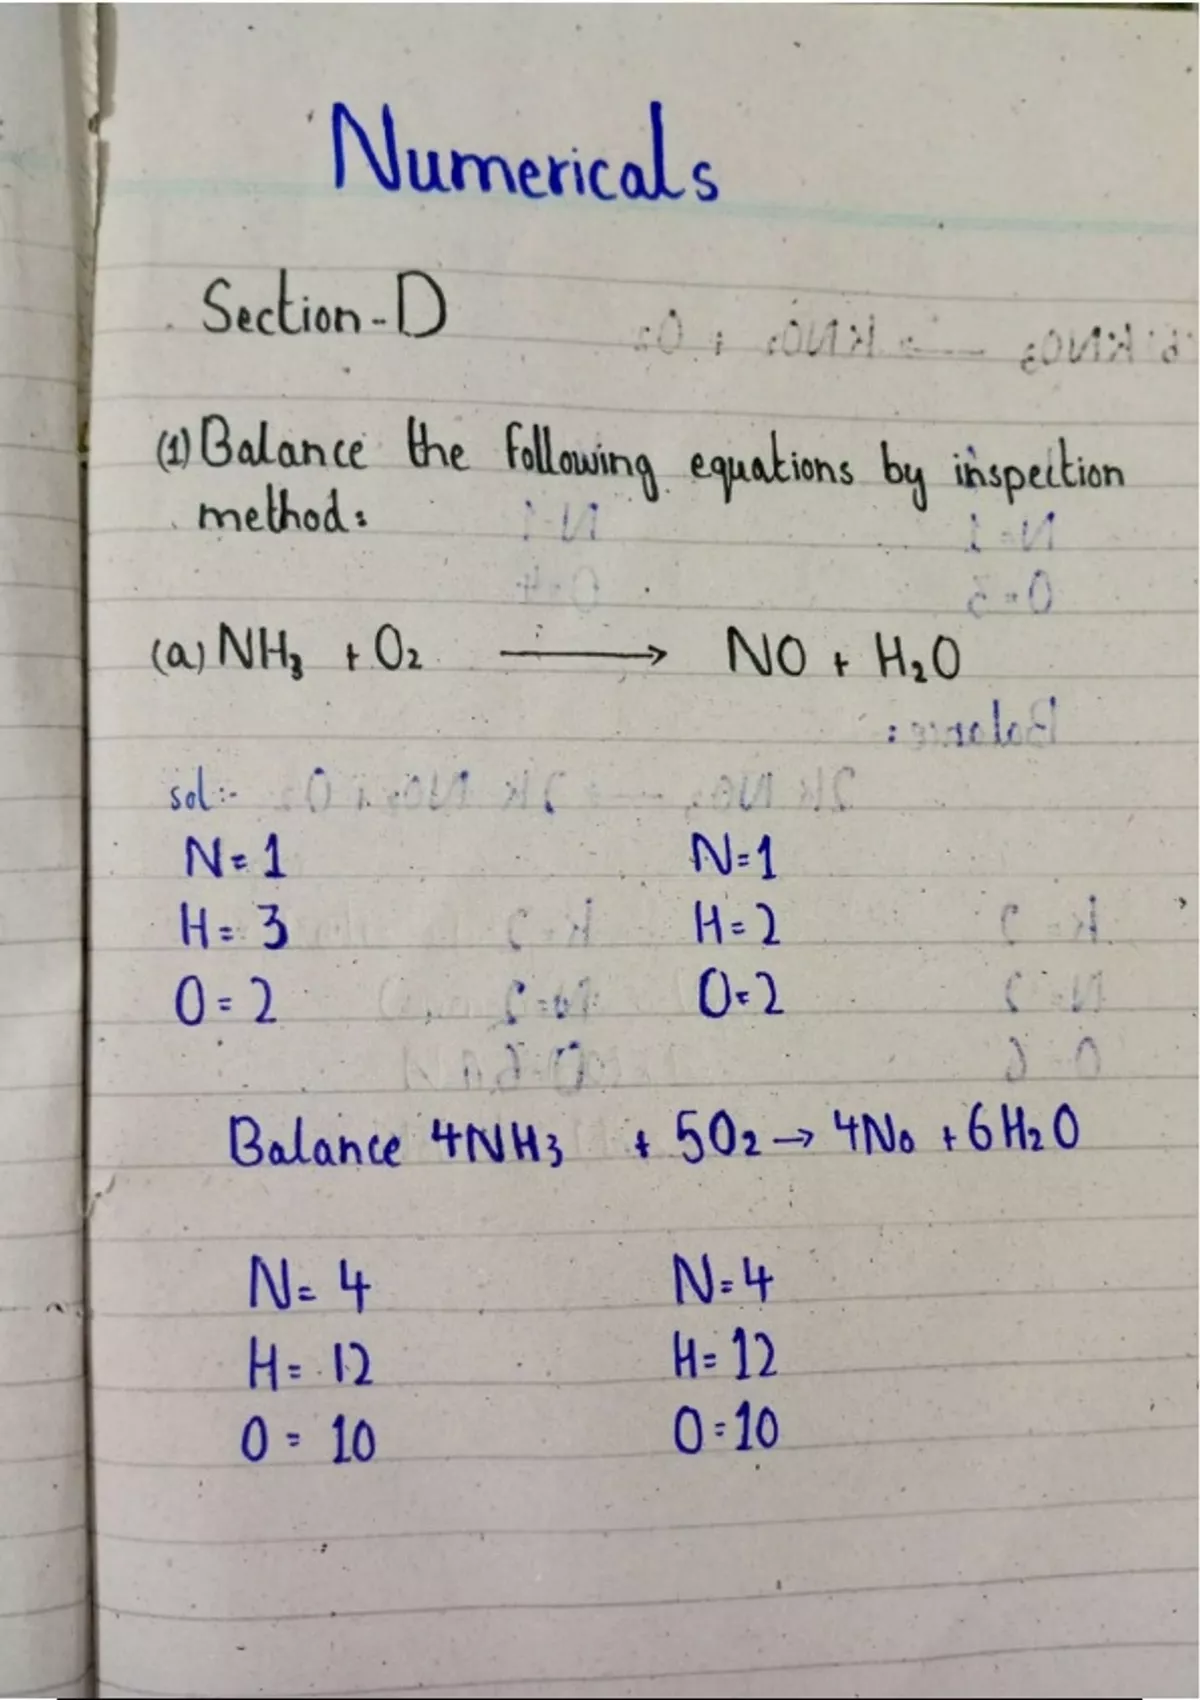 Numericals
Section-D
(1) Balance the following equations by inspection
method:
(a) NH₃ + O₂ ⟶ NO + H₂O
sol:-
N=1 N=1
H=3 H=2
O=2 O=2
Balance 4NH₃ + 5O₂ → 4No + 6H₂O
N=4 N=4
H=12 H=12
O=10 O=10